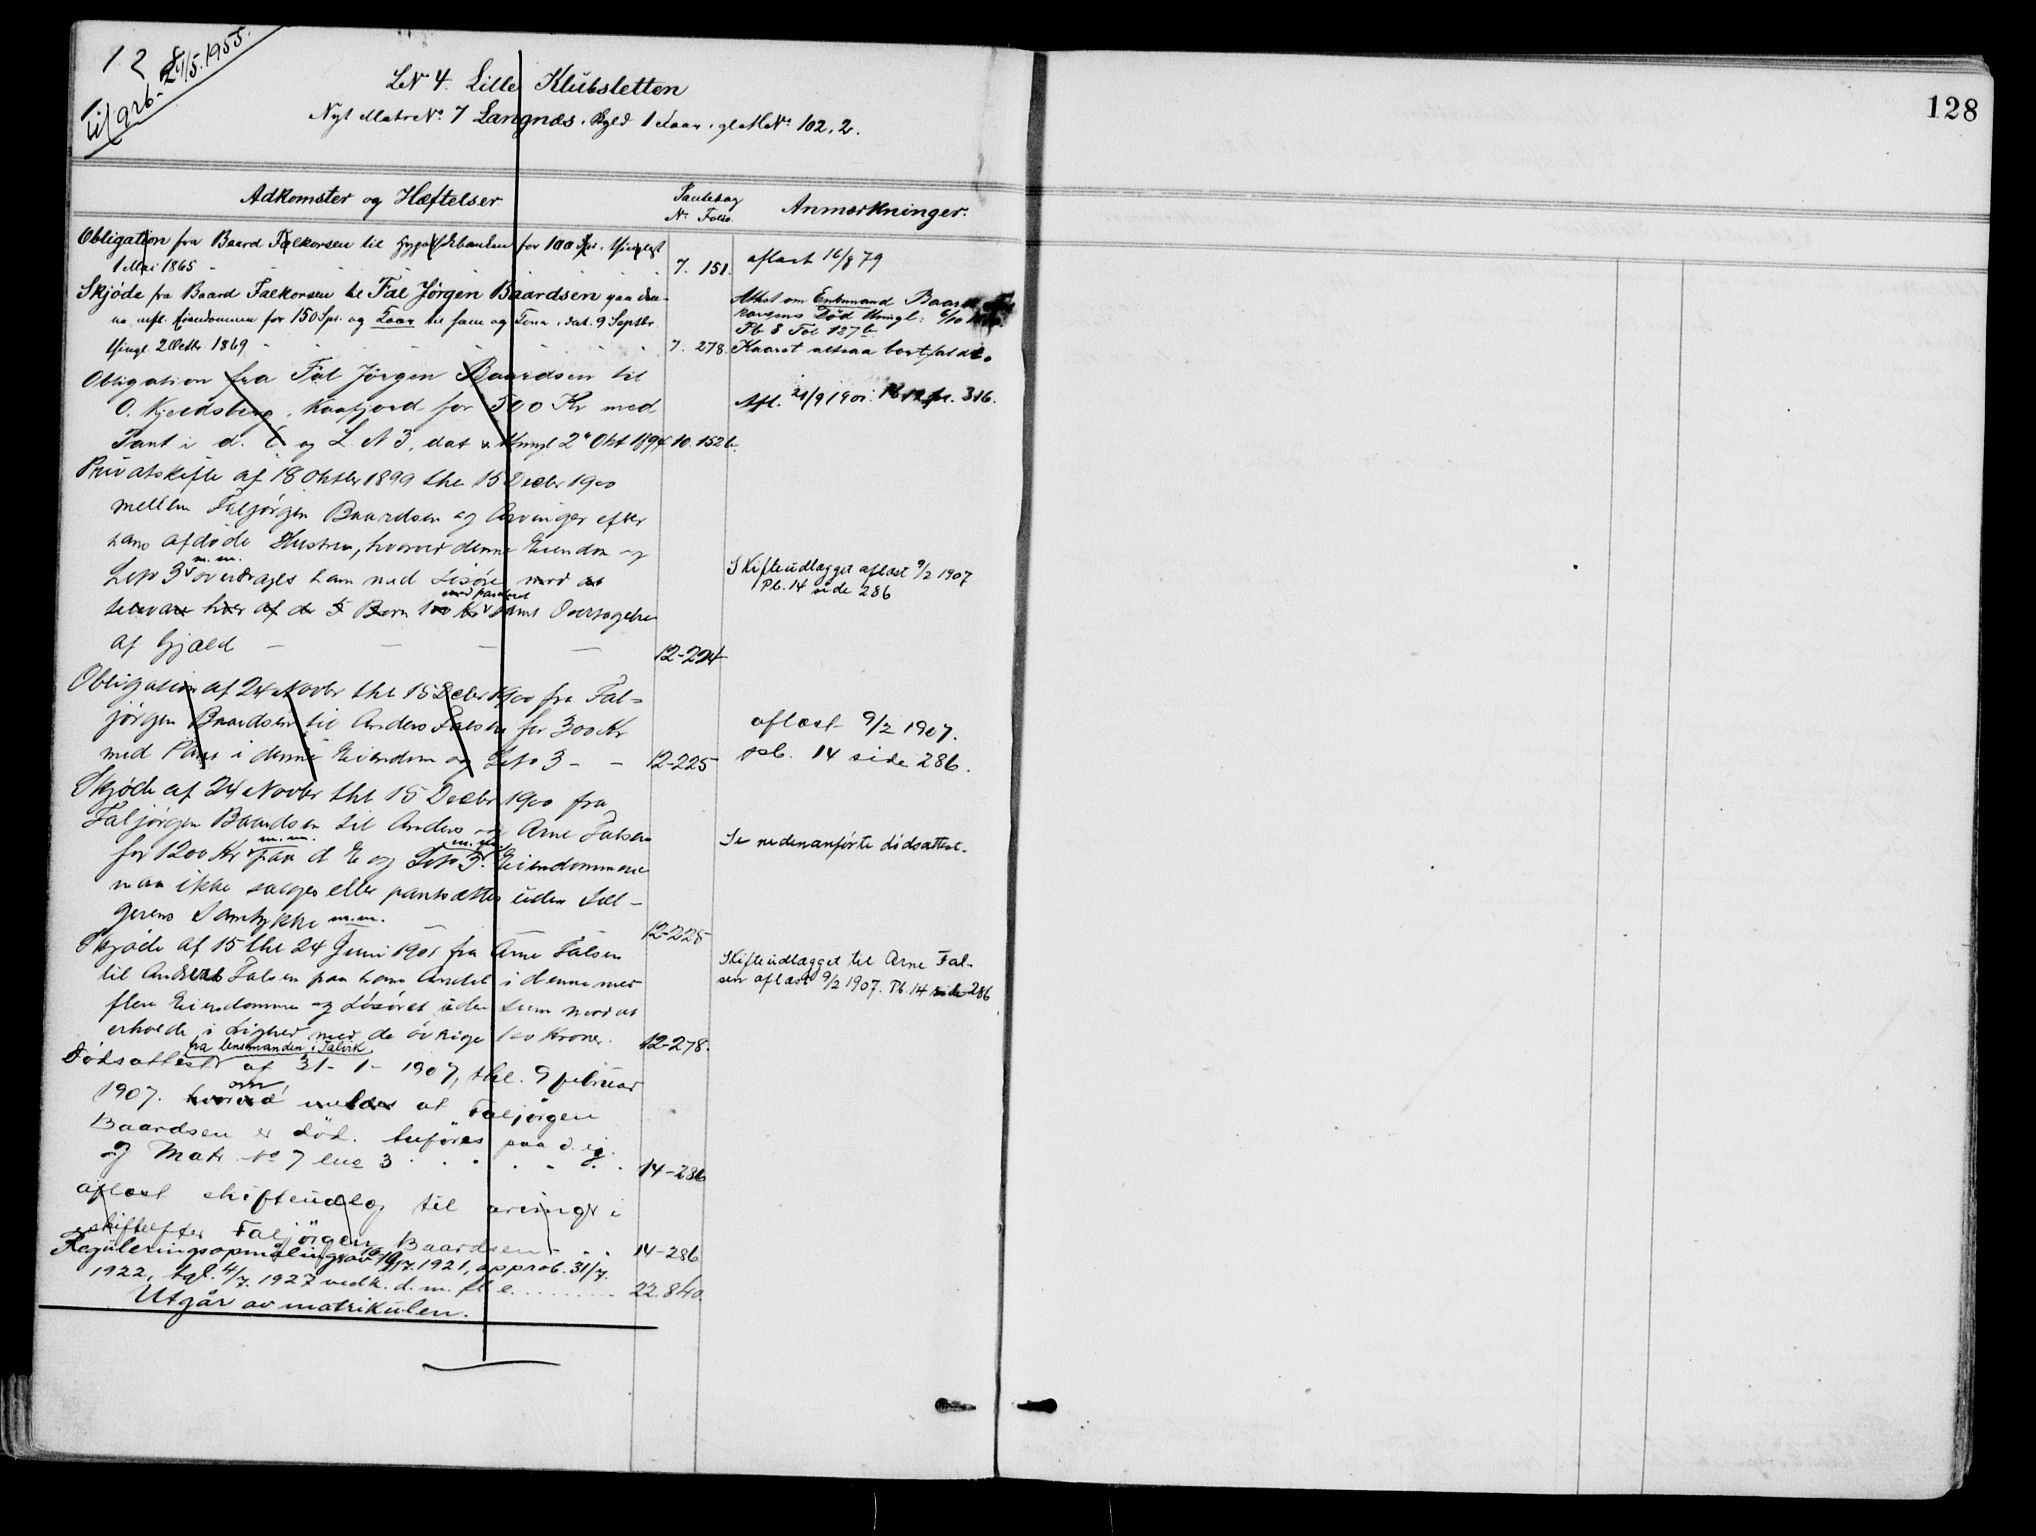 12
Tilarb. 28/5.1955.
128
LN 4. Lille Klubsletten
Nyt Matr N. 7 Langnæs. Skyld 1 Laar. gl M N. 102, 2.
Adkomster og Hæftelser
Pantebog
N. Folio.
Anmærkninger.
Obligation fra Baard Falkorsen til for 100 Spr. thinglyst
1 Mai 1865 7. 151.
aflæst 16/8 79
Skjøde fra Baard Falkorsen til Fal Jørgen Baardsen paa den-
ne Eiendommen for 150 Spr. og Kaar til ham og Kona, dat. 9 Septbr
thingl. 2 Octbr. 1869 7. 278.
Attest om Enkemand Baard Fal-
korsens Død thingl: 6/10
Pb 8 Fol 127b
Kaaret altsaa bortfaldt.
Obligation fra Fal Jørgen Baardsen til
O. Kjeldsberg, Kaafjord for 500 Kr med
Pant i d. E og L. N 3, dat & thingl 2. Okt 1894 10. 152b.
Afl. 21/9 1901. Pb 12 fol. 316.
Privatskifte af 18 Oktbr 1899 thl 15 Decbr 1900
mellem Faljørgen Baardsen og Arvinger efter
hans afdøde Hustru, hvorved denne Eiendom og
LNo 3 m.m. overdrages ham med Løsøre mod at
tilsvare hver af de 5 Børn 100 Kr samt Overtagelse
af Gjæld — — — — 12-224
Skifteudlægget aflæst 9/2 1907
Pb. 14 side 286
Obligation af 24 Novbr thl 15 Decbr 1900 fra Fal-
jørgen Baardsen til Anders Falsen for 300 Kr
med Pant i denne Eiendom og LNo 3 - - 12-225
aflæst 9/2 1907.
psb. 14 side 286.
Skjøde af 24 Novbr thl 15 Decbr 1900 fra
Faljørgen Baardsen til Anders og Arne Falsen
for 1200 Kr m.m. paa d E og LNo 3 m.m. Eiendommene
maa ikke sælges eller pantsættes uden Sæl-
gerens Samtykke m.m. 12-225
Se nedenanførte dødsattest.
Skjøde af 15 thl 24 Juni 1901 fra Arne Falsen
til Anders Falsen paa hans Andel i denne med
flere Eiendomme og Løsøret uden Sum mod at
erholde i Lighed med de øvrige 100 Kroner. 12-278.
Skifteudlægget til Arne Fal-
sen aflæst 9/2 1907. Pb. 14 side 286
fra lensmanden i Talvik
Dødsattest af 31-1-1907, thl. 9 februar
1907. hvorved om meldes at Faljørgen
Baardsen er død. Anføres paa d. eg.
og Matr. No 7 lno 3 . . . . . . 14-286
aflæst skifteudlæg til arvinger i
skifte efter Faljørgen Baardsen - . . 14-286
Reguleringsopmålings av 19/7.1921, approb. 31/7.
1922, tgl. 4/7.1927 vedk. d. m. fl. e. . . . . . . 22.840.
Utgår av matrikulen.